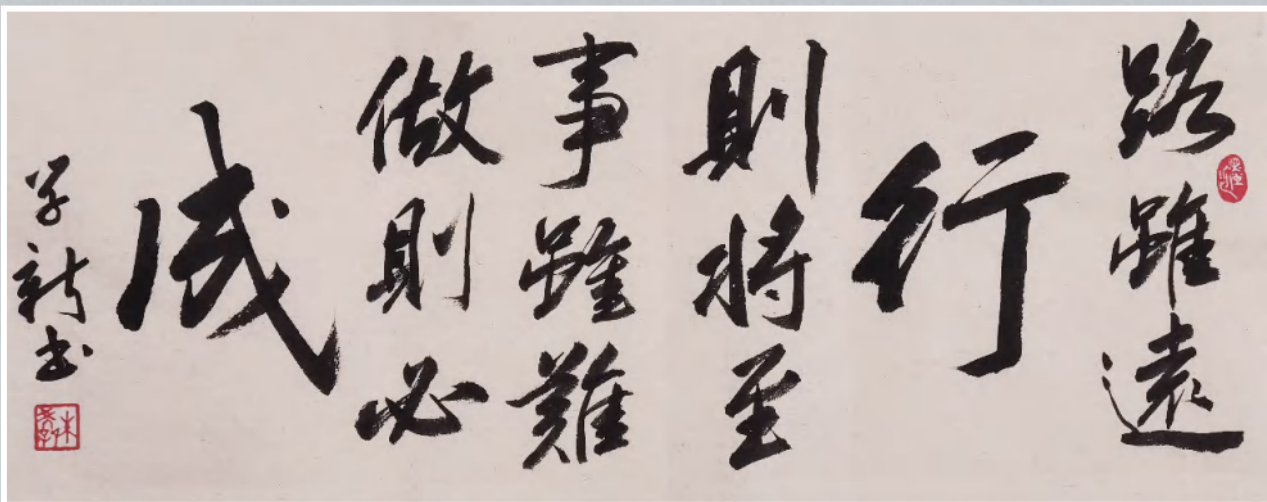 路雖遠
行
則將至
事雖難
做則必
成
学新书